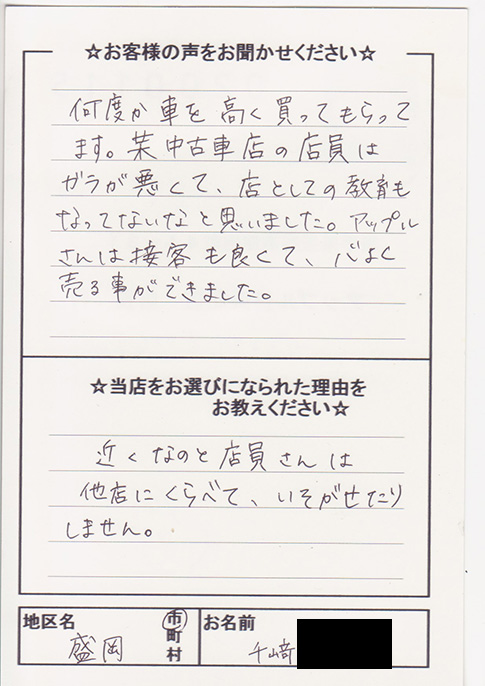 ☆お客様の声をお聞かせください☆
何度か車を高く買ってもらって
ます。某中古車店の店員は
ガラが悪くて、店としての教育も
なってないなと思いました。アップル
さんは接客も良くて、心よく
売る事ができました。
☆当店をお選びになられた理由を
お教えください☆
近くなのと店員さんは
他店にくらべて、いそがせたり
しません。
地区名 盛岡 市町村 お名前 千崎